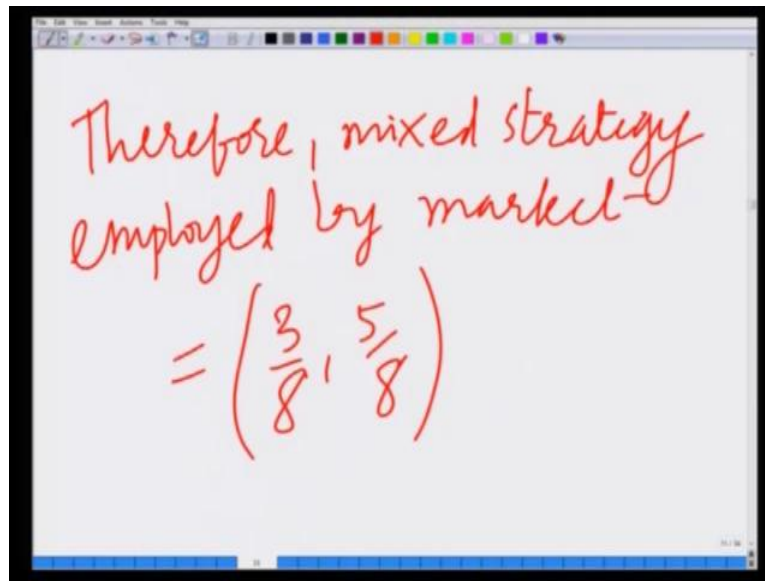 File Edit View Insert Actions Tools Help
Therefore, mixed strategy
employed by market
= (3/8, 5/8)